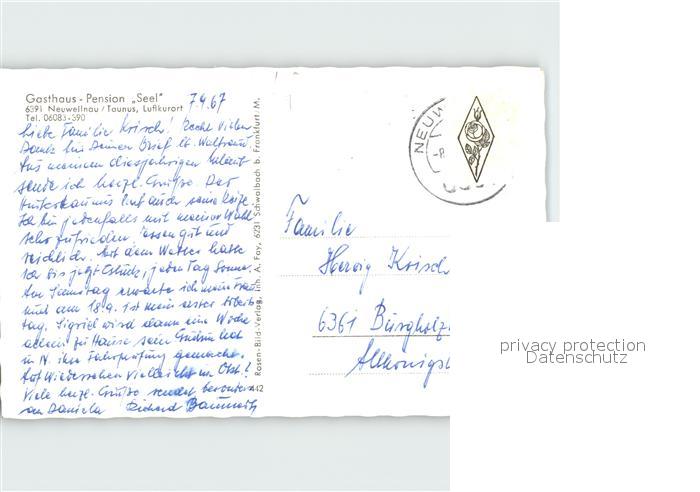 Gasthaus - Pension „Seel"
6391 Neuweilnau / Taunus, Luftkurort
Tel. 06083-390
7.9.67
Liebe Familie Krisch! Recht vielen
Dank für Deinen Brief lb. Waltraud.
Aus meinem diesjährigen Urlaub
sende ich herzl. Grüße. Der
Hintertaunus hat auch seine Reize.
Ich bin jedenfalls mit meiner Wahl
sehr zufrieden. Essen gut und
reichlich. Mit dem Wetter hatte
ich bis jetzt Glück, jeden Tag Sonne.
Am Samstag erwarte ich meine Frau
und am 18.9. ist mein erster Arbeits
tag. Sigrid wird dann eine Woche
allein zu Hause sein. Gudrun hat
in N. ihre Fahrprüfung gemacht.
Auf Wiedersehen vielleicht im Okt.!
Viele herzl. Grüße sendet besonders
an Daniela Richard
Rosen-Bild-Verlag, Inh. A. Fay, 6231 Schwalbach b. Frankfurt. M.
42
NEUW
-8
Familie
Herwig Krisch
6361 Burgholz
Altkönigst
privacy protection
Datenschutz